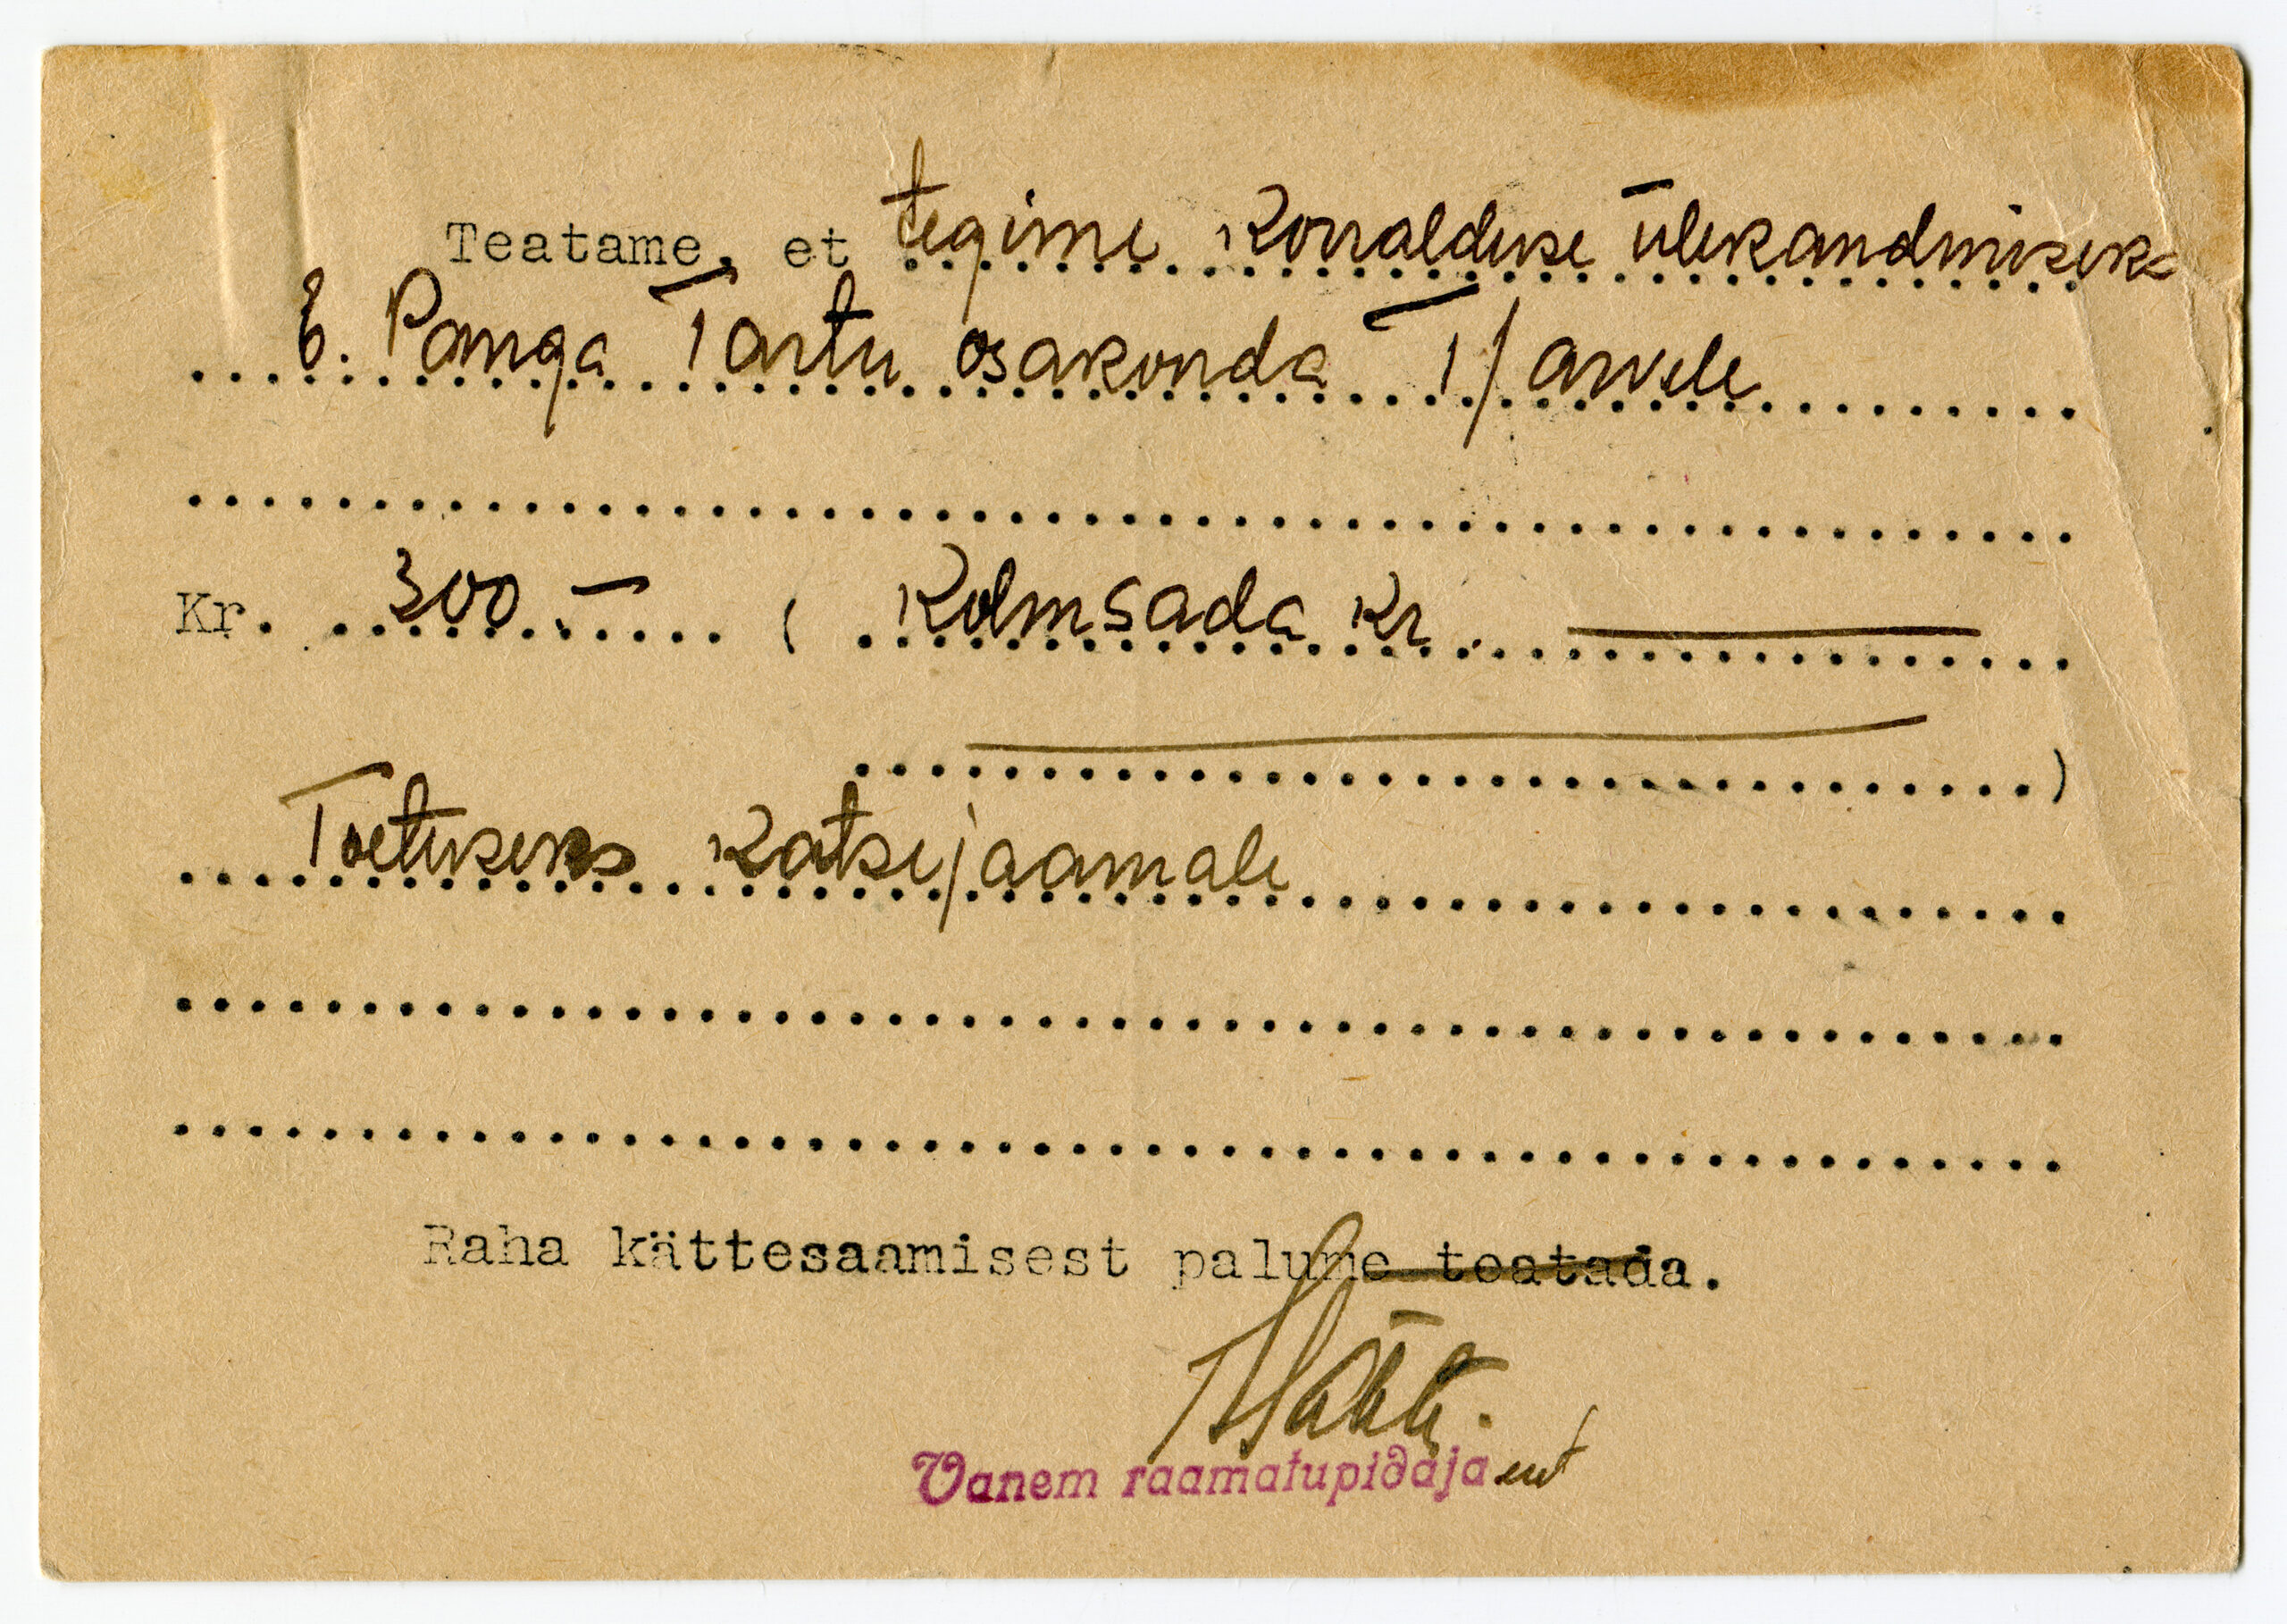 Teatame, et tegime korralduse ülekandmiseks
E. Panga Tartu osakonda T/arvele
Kr. 300.— ( Kolmsada kr.
)
Toetuseks Katsejaamale
Raha kättesaamisest palume teatada.
Vanem raamatupidaja eest